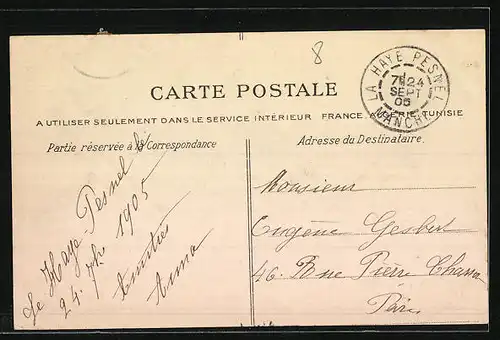 8
LA HAYE PESNEL
7H 24
SEPT
05
MANCHE
CARTE POSTALE
A UTILISER SEULEMENT DANS LE SERVICE INTÉRIEUR FRANCE, ALGÉRIE, TUNISIE
Partie réservée à la Correspondance
La Haye Pesnel le
24. 7bre 1905
Amitiés
Anna
Adresse du Destinataire.
Monsieur
Eugène Gesbert
46. Rue Pierre Charron
Paris